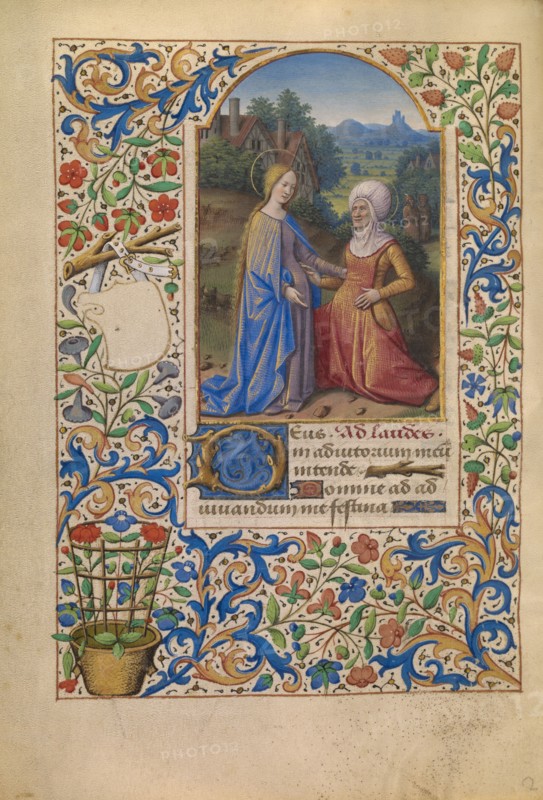 PHOTO12
Deus. Ad laudes.
in adiutorium meū
intende.
Domine ad ad
iuuandum me festina
PHOTO12
2